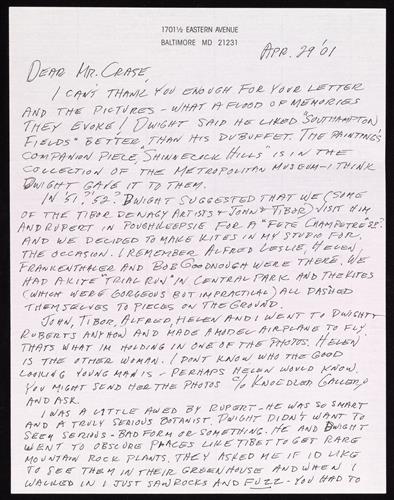 1701½ EASTERN AVENUE
BALTIMORE MD 21231
APR. 29 '01
DEAR MR. CRASE,
I CAN'T THANK YOU ENOUGH FOR YOUR LETTER
AND THE PICTURES - WHAT A FLOOD OF MEMORIES
THEY EVOKE! DWIGHT SAID HE LIKED "SOUTHAMPTON
FIELDS" BETTER THAN HIS DUBUFFET. THE PAINTING'S
COMPANION PIECE, "SHINNECOCK HILLS" IS IN THE
COLLECTION OF THE METROPOLITAN MUSEUM - I THINK
DWIGHT GAVE IT TO THEM.
IN '51?' '52? DWIGHT SUGGESTED THAT WE (SOME
OF THE TIBOR DENAGY ARTISTS & JOHN & TIBOR) VISIT HIM
AND RUPERT IN POUGHKEEPSIE FOR A "FETE CHAMPETRE"
AND WE DECIDED TO MAKE KITES IN MY STUDIO FOR
THE OCCASION. I REMEMBER ALFRED LESLIE, HELEN
FRANKENTHALER AND BOB GOODNOUGH WERE THERE. WE
HAD A KITE "TRIAL RUN" IN CENTRAL PARK AND THE KITES
(WHICH WERE GORGEOUS BUT IMPRACTICAL) ALL DASHED
THEMSELVES TO PIECES ON THE GROUND.
JOHN, TIBOR, ALFRED, HELEN AND I WENT TO DWIGHT &
RUPERTS ANYHOW AND MADE A MODEL AIRPLANE TO FLY.
THATS WHAT I'M HOLDING IN ONE OF THE PHOTOS. HELEN
IS THE OTHER WOMAN. I DON'T KNOW WHO THE GOOD
LOOKING YOUNG MAN IS - PERHAPS HELEN WOULD KNOW.
YOU MIGHT SEND HER THE PHOTOS % KNOEDLER GALLERY
AND ASK.
I WAS A LITTLE AWED BY RUPERT - HE WAS SO SMART
AND A TRULY SERIOUS BOTANIST. DWIGHT DIDN'T WANT TO
SEEM SERIOUS - BAD FORM OR SOMETHING. HE AND DWIGHT
WENT TO OBSCURE PLACES LIKE TIBET TO GET RARE
MOUNTAIN ROCK PLANTS. THEY ASKED ME IF I'D LIKE
TO SEE THEM IN THEIR GREENHOUSE AND WHEN I
WALKED IN I JUST SAW ROCKS AND FUZZ - YOU HAD TO